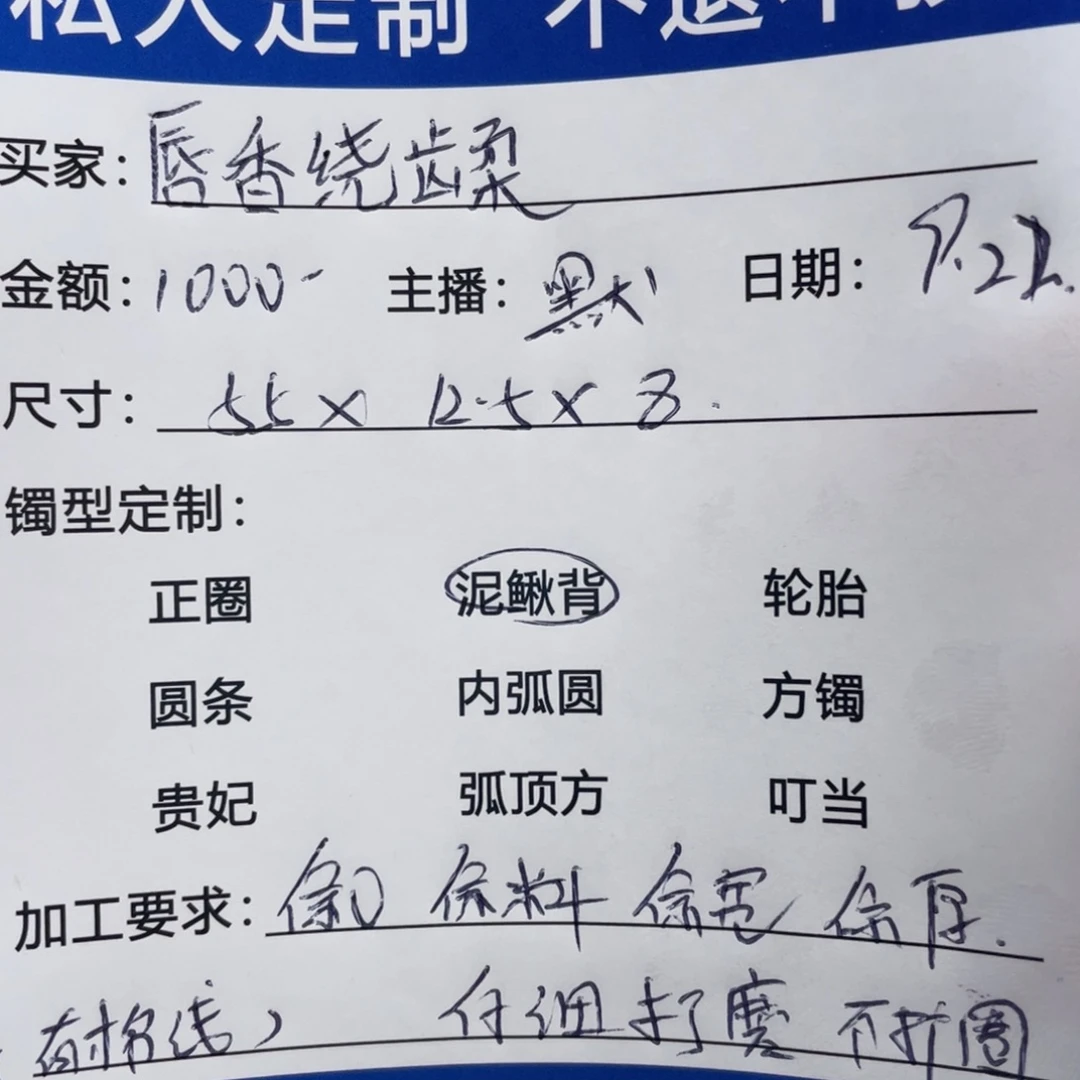 私人定制 不退不换
买家：唇香绕齿柔
金额：1000- 主播：默 日期：
尺寸：55× 12.5× 8.
镯型定制：
正圈 泥鳅背 轮胎
圆条 内弧圆 方镯
贵妃 弧顶方 叮当
加工要求：保口 保料 保宽 保厚.
有棉线） 仔细打磨 不扩圈